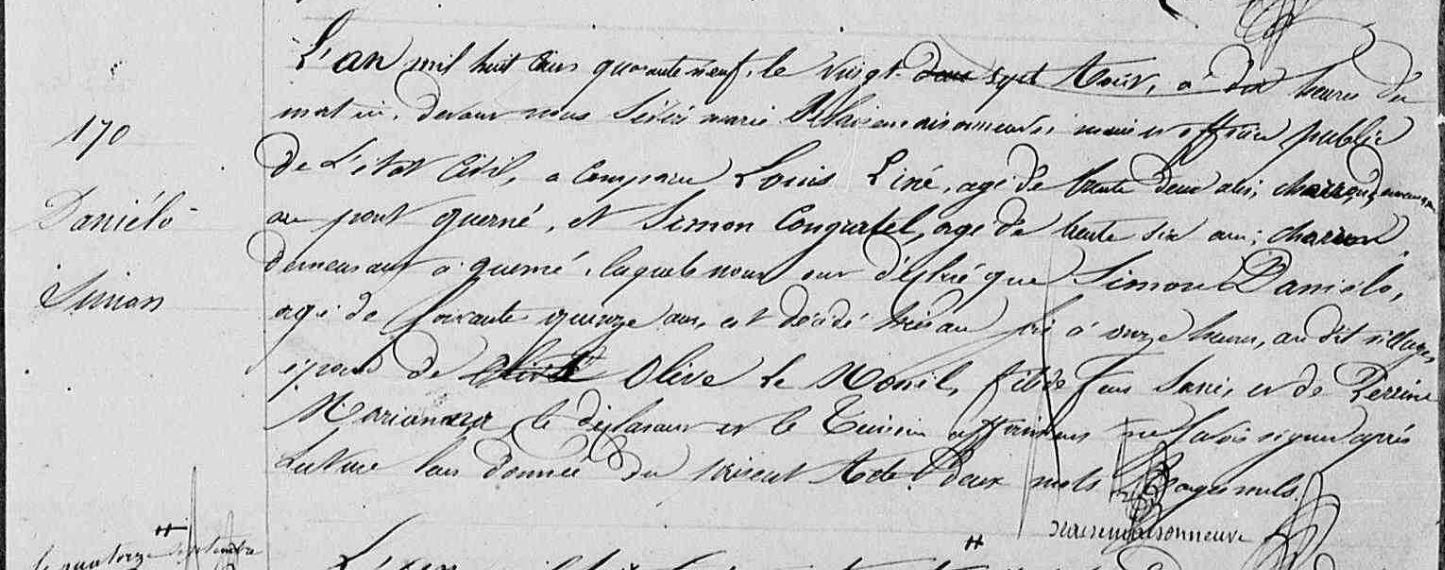 170
Daniélo
Simon
L'an mil huit cens quarante neuf, le vingt sept Août, à dix heures du
matin, devant nous marie maire et officier public
de L'état Civil, a Comparu Louis Liné, agé de trente deux ans, charron, demeurant
au pont querné, et Simon Congratel, agé de trente six ans, charron,
demeurant à querné, lequels nous ont déclaré que Simon Daniélo,
agé de soixante quinze ans, est décédé hier au soir à onze heures, au dit village,
époux de Olive Le Monil, fils de feus et de Perrine
le déclarant et le Témoin affirment ne savoir signer après
Lecture leur donnée du présent Acte. deux mots Rayés nuls.
le quatorze septembre
L'an mil huit